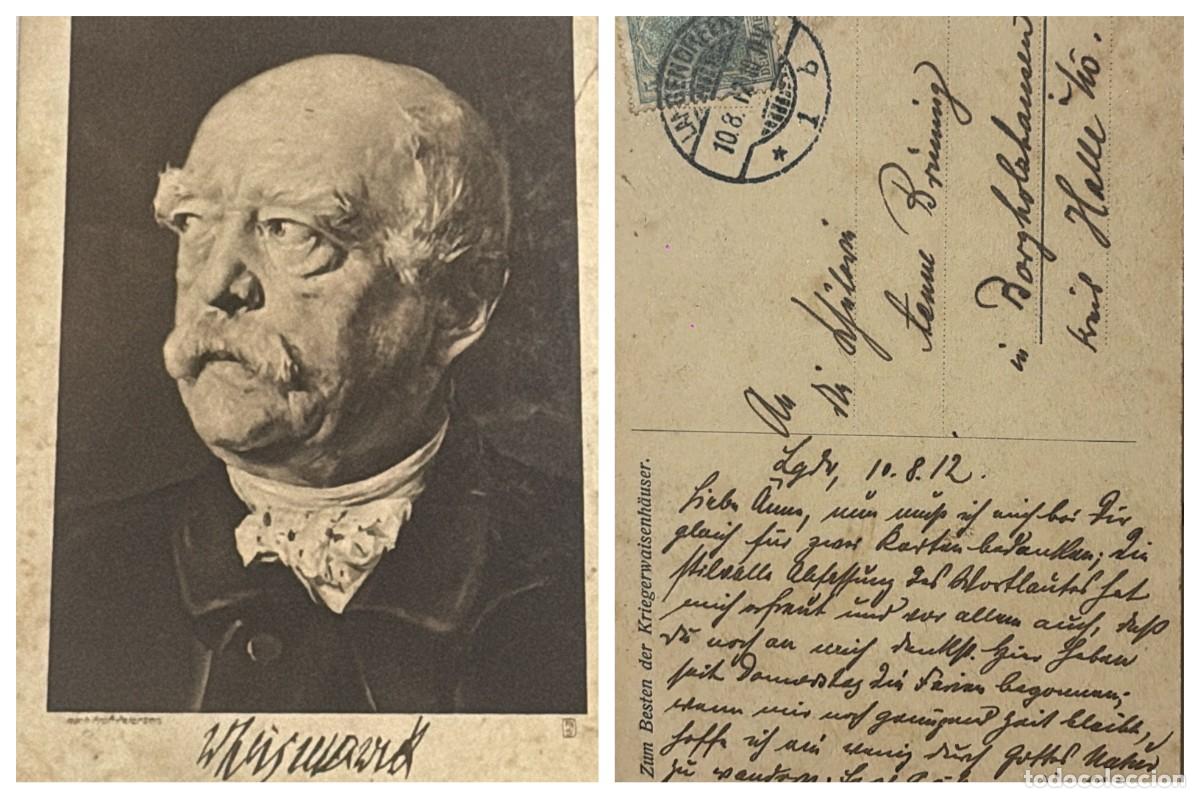 nach Prof. Petersen
v Bismarck
LANGENDREER
10.8.12
* 1 b
An
die Schülerin
Brüning
in Borgholzhausen
Kreis Halle
Zum Besten der Kriegerwaisenhäuser.
Lgdr, 10.8.12.
Liebe Änne, nun muß ich mich bei Dir
gleich für zwei Karten bedanken; die
stilvolle Abfassung des Wortlautes hat
mich erfreut und vor allem auch, daß
Du noch an mich denkst. Hier haben
seit Donnerstag die Ferien begonnen;
wenn mir noch genügend Zeit bleibt,
hoffe ich ein wenig durch Gottes Natur
zu wandern.
todocoleccion